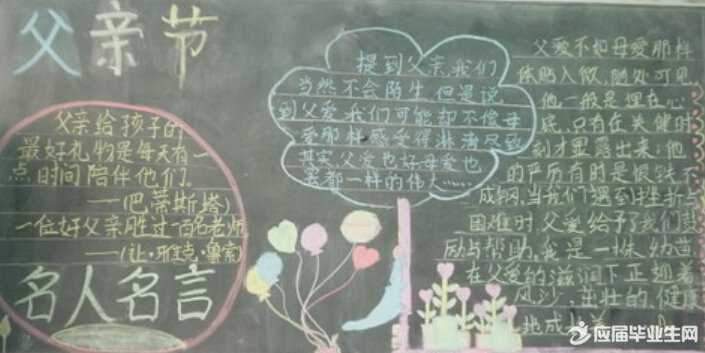 父亲节
父亲给孩子的
最好礼物是每天有一
点时间陪伴他们。
——(巴蒂斯塔)
一位好父亲胜过一百名老师
——(让·雅克·鲁索)
名人名言
提到父亲,我们
当然不会陌生,但是说
到父爱我们可能却不像母
爱那样感受得淋漓尽致
其实,父爱也好母爱也
罢都一样的伟大……
父爱不如母爱那样
体贴入微,随处可见,
他一般是埋在心
底,只有在关健时
刻才显露出来;他
的严厉有时是恨铁不
成钢,当我们遇到挫折与
困难时父爱给予我们鼓
励与帮助,我是一株幼苗
在父爱的滋润下正迎着
风沙,茁壮的,健康
地成
应届毕业生网